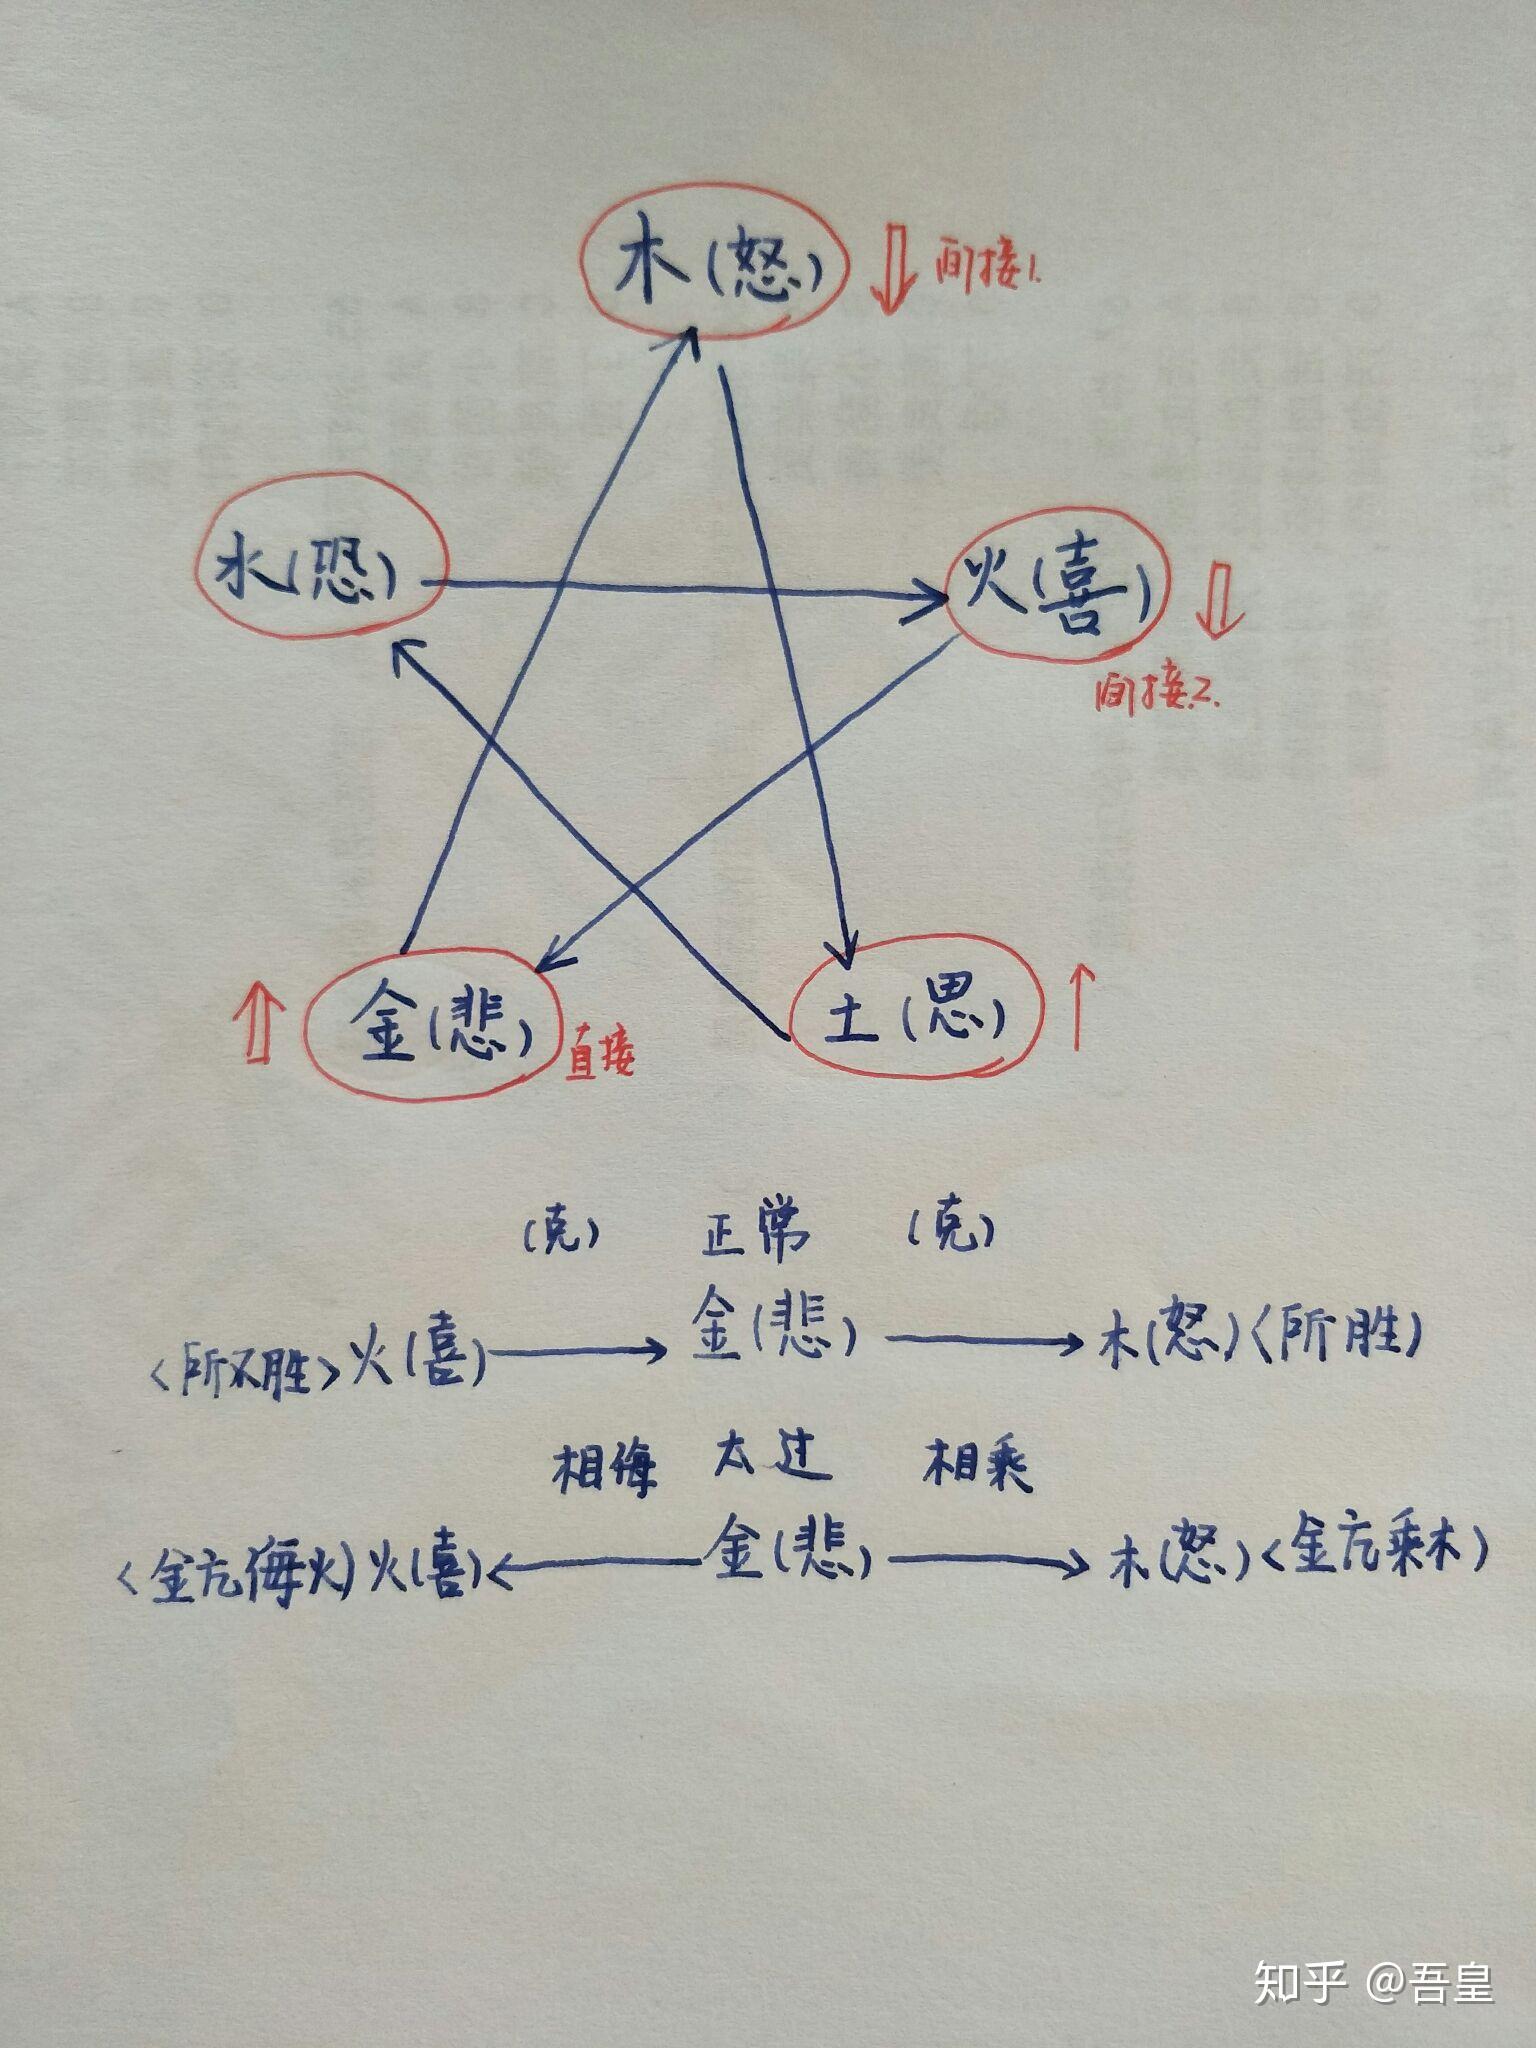 木(怒) 间接1.
水(恐) 火(喜)
间接2.
金(悲) 直接 土(思)
(克) 正常 (克)
<所不胜>火(喜) 金(悲) 木(怒)<所胜)
相侮 太过 相乘
<金亢侮火)火(喜) 金(悲) 木(怒)<金亢乘木)
知乎 @吾皇